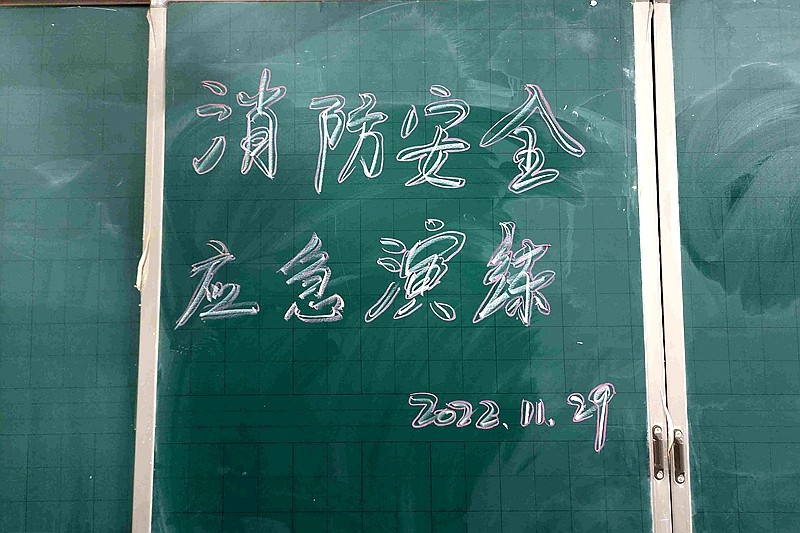 消防安全
应急演练
2022.11.29